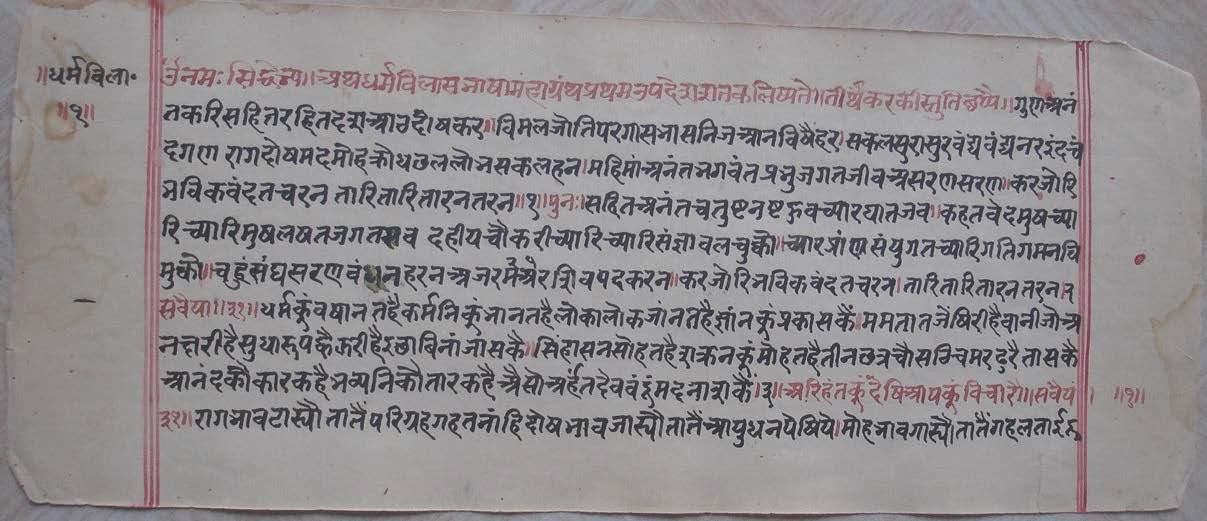 ॥धर्मविला॰
॥१॥
ॐनमः सिद्धेभ्यः॥अथधर्मविलासभाषामहाग्रंथप्रथमउपदेशशतकलिष्यते॥तीर्थंकरकीस्तुतिछप्पै॥गुणअनं
तकरिसहितरहितदशआठदोषकर॥विमलजोतिपरगासभासनिजआनविषैहर॥सकलसुरासुरवंद्यवंद्यनरइंदचं
दगण रागदोषमदमोहक्रोधछललोभसकलहन॥महिमांअनंतभगवंतप्रभुजगतजीवअसरणसरण॥करजोरि
भविकवंदतचरन तारितारितारनतरन॥१॥पुनः॥सहितअनंतचतुष्टनष्टकुवच्यारघातजव॥कहतवेदमुषच्या
रिच्यारिमुषलषतजगतसव दहीयचौकरीच्यारिच्यारिसंज्ञावलचुक्को॥च्यारप्रांणसंयुगतच्यारिगतिगमनवि
मुक्को॥चहुंसंघसरणवंधनहरनअजरअमरशिवपदकरन॥करजोरिभविकवंदतचरन॥तारितारितारनतरन॥२
सवैया॥३१॥धर्मकुंवषानतहैकर्मनिकुंभानतहैलोकालोकजांनतहैज्ञांनकुंप्रकासकैं॥ममतातजेषरीहैवानीजोअ
नछरीहैसुधारूपह्वैऊरीहैइछाविनांजासकै॥सिंहासनसोहतहैशक्रनकूंमोहतहैतीनछत्रचौसठिचमरढुरैतासकै
आनंदकौकारकहैभव्यनिकौतारकहैअैसोअर्हंतदेववंदूंमदनाशकैं॥३॥अरिहंतकूंदेषिआपकूंविचारै॥सवैया
॥१॥
३१॥रागभावटास्यौतातैंपरिग्रहगहतनांहिदोषभावजास्यौतातैंआयुधनपेषिये॥मोहभावगास्यौतातैंगहलताई